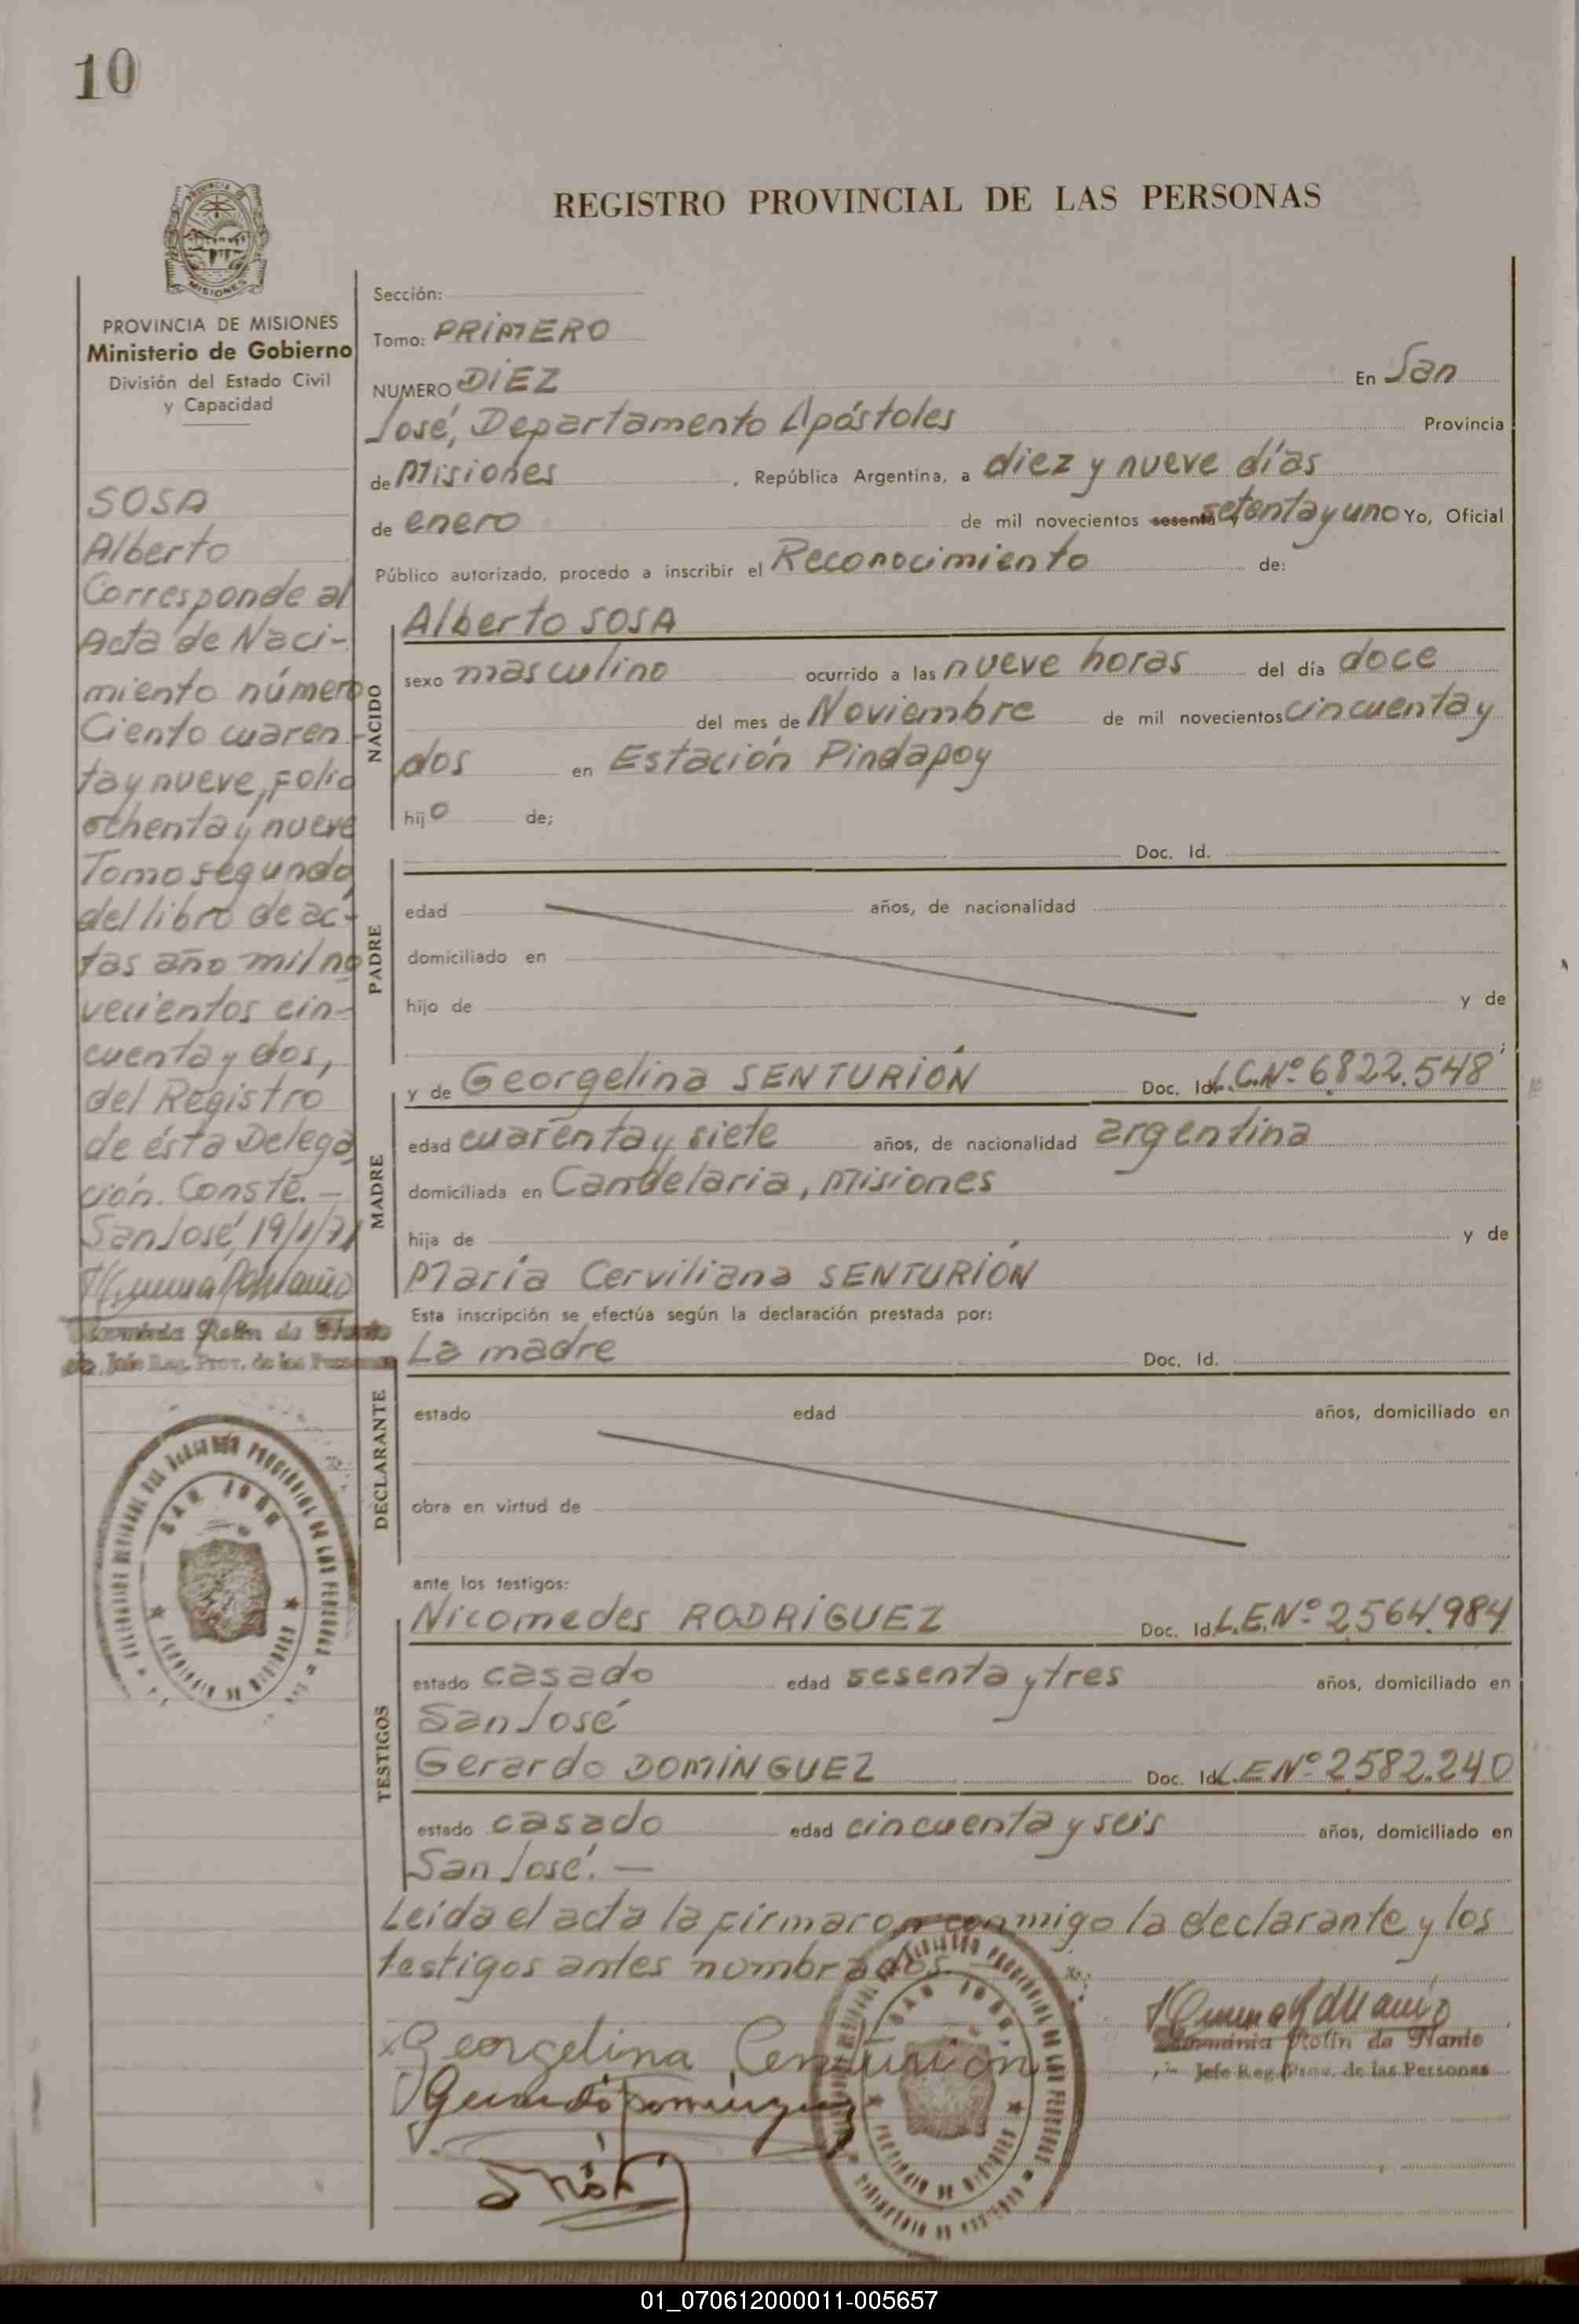 10
REGISTRO PROVINCIAL DE LAS PERSONAS
PROVINCIA DE MISIONES
Ministerio de Gobierno
División del Estado Civil
y Capacidad
SOSA
Alberto
Corresponde al
Acta de Naci-
miento número
Ciento cuaren-
ta y nueve, Folio
ochenta y nueve
Tomo segundo
del libro de ac-
tas año mil no
vecientos cin-
cuenta y dos,
del Registro
de ésta Delega
ción. Conste.-
San José, 19/1/71
Rolin de
Jefe Reg. Prov. de las Personas
SAN JOSE
Sección:
Tomo: PRIMERO
NUMERO DIEZ En San
José, Departamento Apóstoles Provincia
de Misiones, República Argentina, a diez y nueve días
de enero de mil novecientos sesenta y setenta y uno Yo, Oficial
Público autorizado, procedo a inscribir el Reconocimiento de:
NACIDO
Alberto SOSA
sexo masculino ocurrido a las nueve horas del día doce
del mes de Noviembre de mil novecientos cincuenta y
dos en Estación Pindapoy
hijo de;
PADRE
Doc. Id.
edad años, de nacionalidad
domiciliado en
hijo de y de
;
MADRE
y de Georgelina SENTURIÓN Doc. Id. L.C.Nº 6822.548
edad cuarenta y siete años, de nacionalidad argentina
domiciliada en Candelaria, Misiones
hija de y de
María Cerviliana SENTURIÓN
Esta inscripción se efectúa según la declaración prestada por:
DECLARANTE
La madre Doc. Id.
estado edad años, domiciliado en
obra en virtud de
ante los testigos:
TESTIGOS
Nicomedes RODRÍGUEZ Doc. Id. L.E.Nº 2564.984
estado casado edad sesenta y tres años, domiciliado en
San José
Gerardo DOMÍNGUEZ Doc. Id. L.E Nº 2582.240
estado casado edad cincuenta y seis años, domiciliado en
San José.-
Leída el acta la firmaron conmigo la declarante y los
testigos antes nombrados.
Georgelina Centurión
Gerardo Dominguez
Rolin de
Jefe Reg. Prov. de las Personas
SAN JOSE
01_070612000011-005657